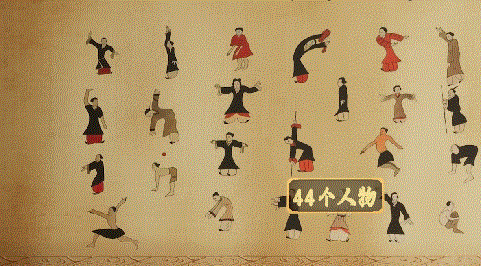 44个人物